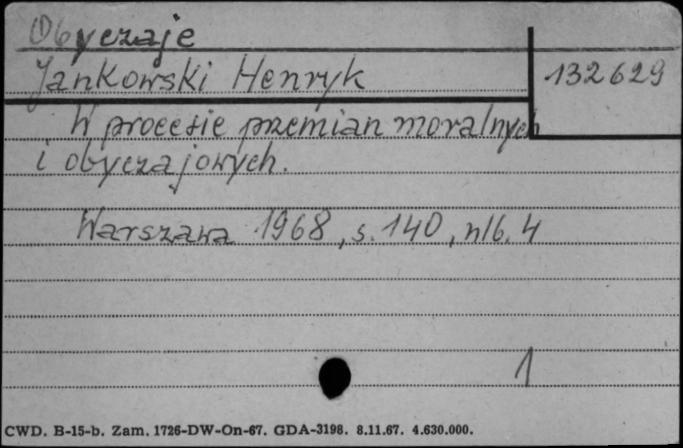 Obyczaje
Jankowski Henryk
132629
W procesie przemian moralnych
i obyczajowych.
Warszawa 1968, s. 140, nlb. 4
1
CWD. B-15-b. Zam. 1726-DW-On-67. GDA-3198. 8.11.67. 4.630.000.